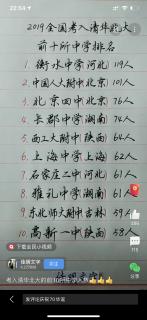 22:54
2019全国考入清华北大
前十所中学排名
1. 衡水中学河北 119人
2. 中国人大附中北京 101人
3. 北京四中北京 76人
4. 长郡中学湖南 74人
5. 西工大附中陕西 64人
6. 上海中学上海 62人
7. 石家庄二中河北 61人
8. 雅礼中学湖南 61人
9. 东北师大附中吉林 59人
10. 高新一中陕西 58人
下载全民小视频
佳琪文字
关注
考入清华北大的前10所中学
发评论获祝70华诞